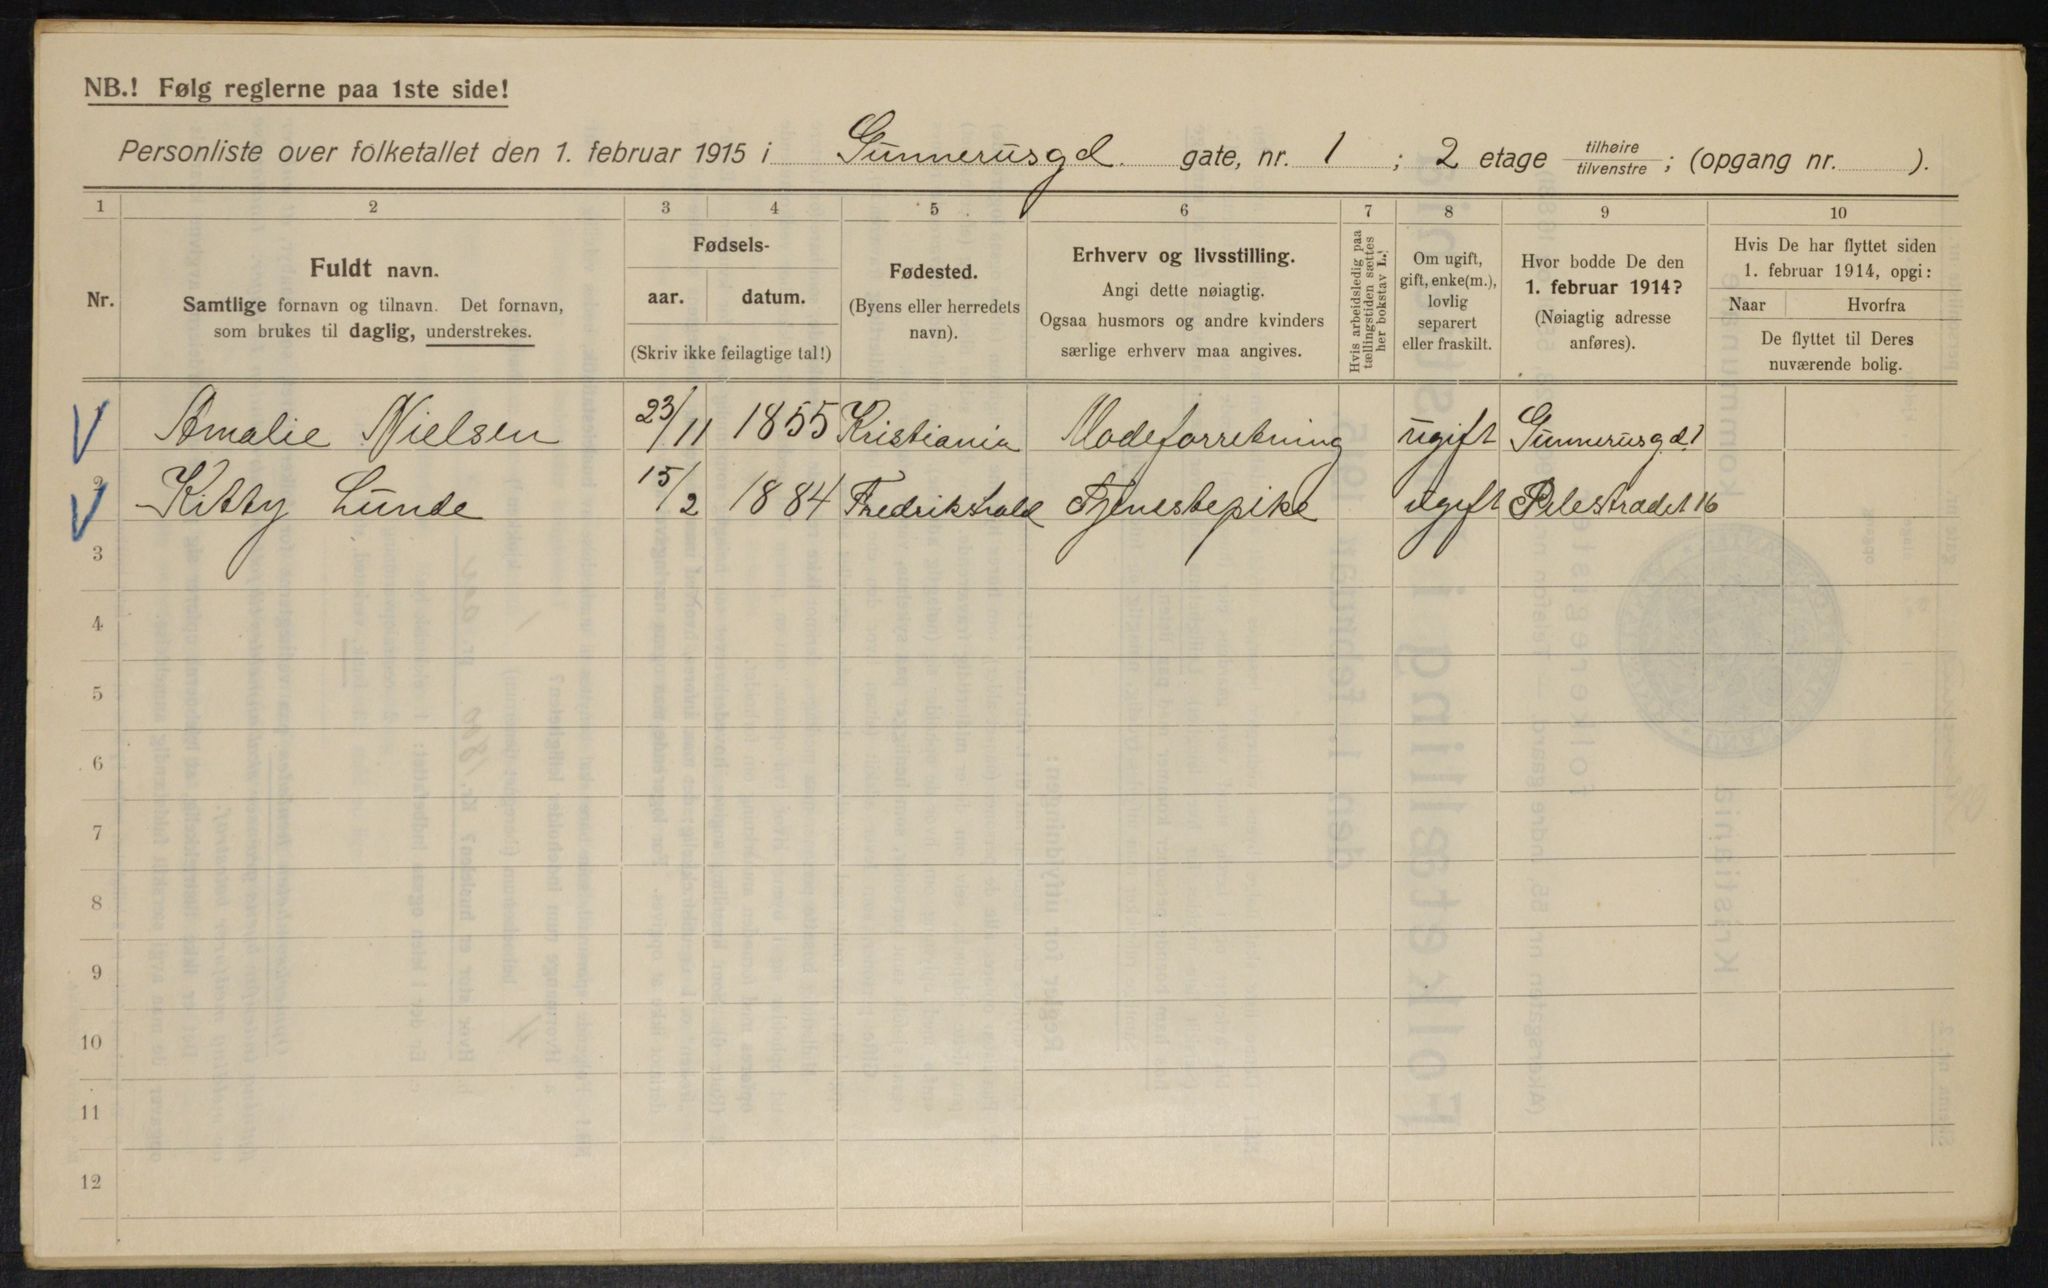 NB.! Følg reglerne paa 1ste side!
Personliste over folketallet den 1. februar 1915 i Gunnerusgd. gate, nr. 1 ; 2 etage tilhøire tilvenstre ; (opgang nr. ).
1 2 3 4 5 6 7 8 9 10
Nr.
Fuldt navn.
Samtlige fornavn og tilnavn. Det fornavn,
som brukes til daglig, understrekes.
Fødsels-
aar. datum.
(Skriv ikke feilagtige tal!)
Fødested.
(Byens eller herredets
navn).
Erhverv og livsstilling.
Angi dette nøiagtig.
Ogsaa husmors og andre kvinders
særlige erhverv maa angives.
Hvis arbeidsledig paa
tællingstiden sættes
her bokstav L.!
Om ugift,
gift, enke(m.),
lovlig
separert
eller fraskilt.
Hvor bodde De den
1. februar 1914?
(Nøiagtig adresse
anføres).
Hvis De har flyttet siden
1. februar 1914, opgi:
Naar Hvorfra
De flyttet til Deres
nuværende bolig.
1 Amalie Nielsen 23/11 1855 Kristiania Modeforretning ugift Gunnerusgd. 1
2 Kitty Lunde 15/2 1884 Fredrikshald Tjenestepike ugift Pilestrædet 16
3
4
5
6
7
8
9
10
11
12